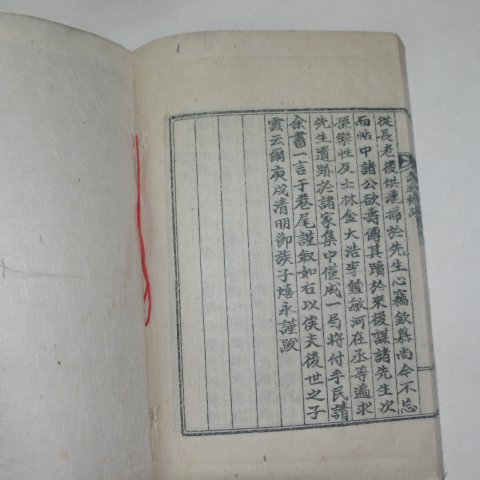 從長老後供灑掃於先生心竊欽慕尚今不忘
而帖中諸公欲壽傳其蹟於來後謀諸先生次
孫樂性及士林金大浩李鍾敏河在丞等遍求
先生遺跡於諸家集中僅成一局將付手民請
余書一言于卷尾謹叙如右以俟夫後世之子
雲云爾庚戌清明節族子熺永謹跋